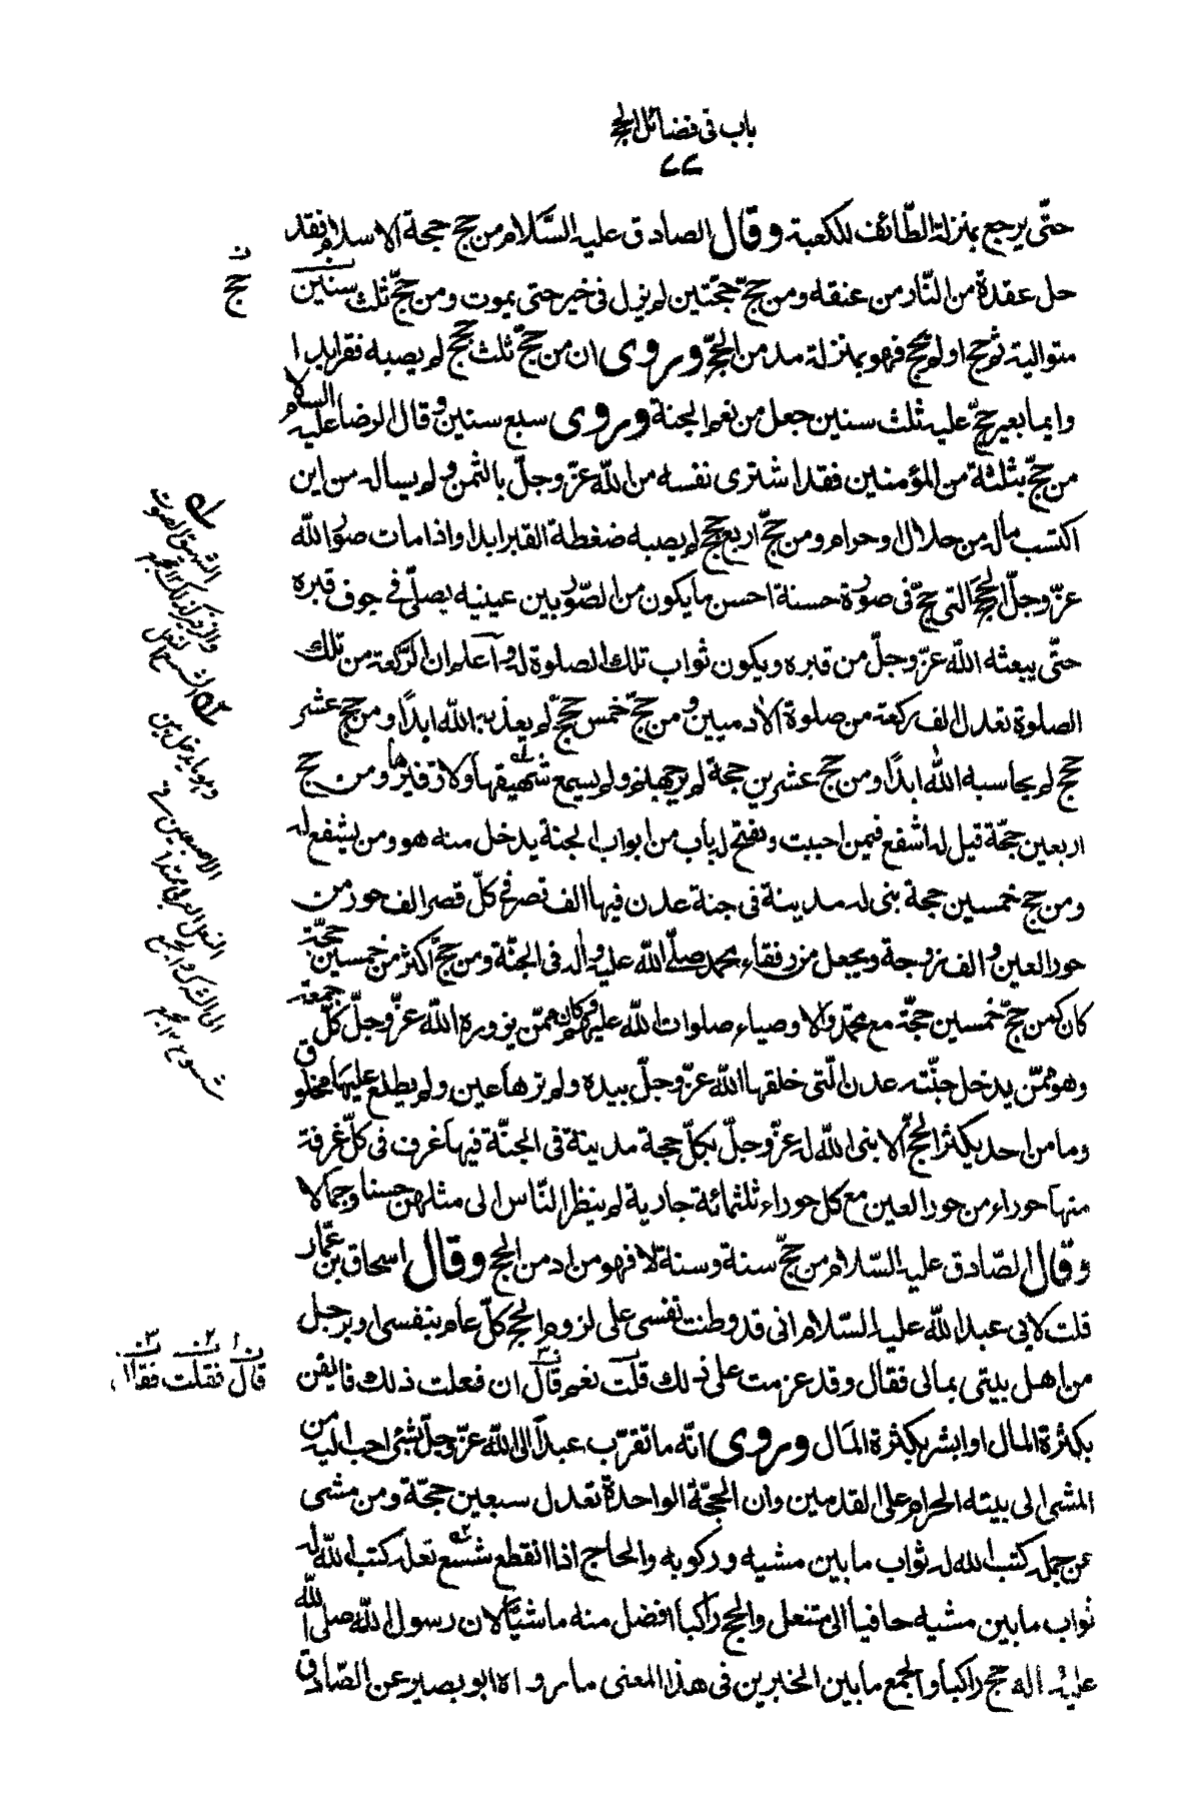 باب فى فضائل الحج
٧٧
حتّى يرجع بمنزلة الطّائف للكعبة وقال الصادق عليه السّلام من حج حجة الاسلام فقد
حل عقدة من النّار من عنقه ومن حجّ حجّتين لم يزل فى خير حتى يموت ومن حجّ ثلث سنين
متوالية ثم حج او لم يحج فهو بمنزلة مدمن الحجّ وروى ان من حجّ ثلث حجج لم يصبه فقر ابدا
وايما بعير حجّ عليه ثلث سنين جعل من نعم الجنة وروى سبع سنين وقال الرضا عليه السلام
من حجّ بثلثة من المؤمنين فقد اشترى نفسه من اللّه عزّ وجلّ بالثمن ولم يساله من اين
اكتسب ماله من حلال او حرام ومن حجّ اربع حجج لم يصبه ضغطة القبر ابدا واذا مات صوّر اللّه
عزّ وجلّ الحجج التى حجّ فى صورة حسنة احسن ما يكون من الصّور بين عينيه يصلّى فى جوف قبره
حتّى يبعثه اللّه عزّ وجلّ من قبره ويكون ثواب تلك الصلوة له واعلم ان الرّكعة من تلك
الصلوة تعدل الف ركعة من صلوة الادميين ومن حجّ خمس حجج لم يعذبه اللّه ابدًا ومن حج عشر
حجج لم يحاسبه اللّه ابدًا ومن حج عشرين حجة لم ير جهنم ولم يسمع شهيقها ولا زفيرها ومن حج
اربعين حجّة قيل له اشفع فيمن احببت ويفتح له باب من ابواب الجنة يدخل منه هو ومن يشفع له
ومن حج خمسين حجة بنى له مدينة فى جنة عدن فيها الف قصر فى كلّ قصر الف حور من
حور العين والف زوجة ويجعل من رفقاء محمد صلّى اللّه عليه واله فى الجنّة ومن حجّ اكثر من خمسين حجّة
كان كمن حجّ خمسين حجّة مع محمّد والاوصياء صلوات اللّه عليهم وكان ممّن يزوره اللّه عزّ وجلّ كلّ جمعة
وهو ممّن يدخل جنّة عدن الّتى خلقها اللّه عزّ وجلّ بيده ولم ترها عين ولم يطلع عليها مخلوق
وما من احد يكثر الحجّ الا بنى اللّه له عزّ وجلّ بكلّ حجة مدينة فى الجنّة فيها غرف فى كلّ غرفة
منها حوراء من حور العين مع كل حوراء ثلثمائة جارية لم ينظر النّاس الى مثلهن حسنا وجمالا
وقال الصّادق عليه السّلام من حجّ سنة وسنة لا فهو من ادمن الحج وقال اسحاق بن عمّار
قلت لابى عبد اللّه عليه السّلام انى قد وطنت نفسى على لزوم الحج كلّ عام بنفسى او برجل
من اهل بيتى بمالى فقال وقد عزمت على ذلك قلت نعم قال ان فعلت ذلك فايقن
بكثرة المال او ابشر بكثرة المال وروى انّه ما تقرّب عبد الى اللّه عزّ وجلّ بشئ احب اليه من
المشى الى بيته الحرام على القدمين وان الحجّة الواحدة تعدل سبعين حجّة ومن مشى
عن جمله كتب الله له ثواب ما بين مشيه وركوبه والحاج اذا انقطع شسع نعله كتب اللّه له
ثواب ما بين مشيه حافيا الى متنعل والحج راكبا افضل منه ماشيًا لان رسول اللّه صلى اللّه
عليه واله حج راكبا والجمع ما بين الخبرين فى هذا المعنى ما رواه ابو بصير عن الصّادق
ن
حج
الشهيق الصوت
الشسع
وهو ما يدخل بين
الاصبعين
قال فقلت فقال